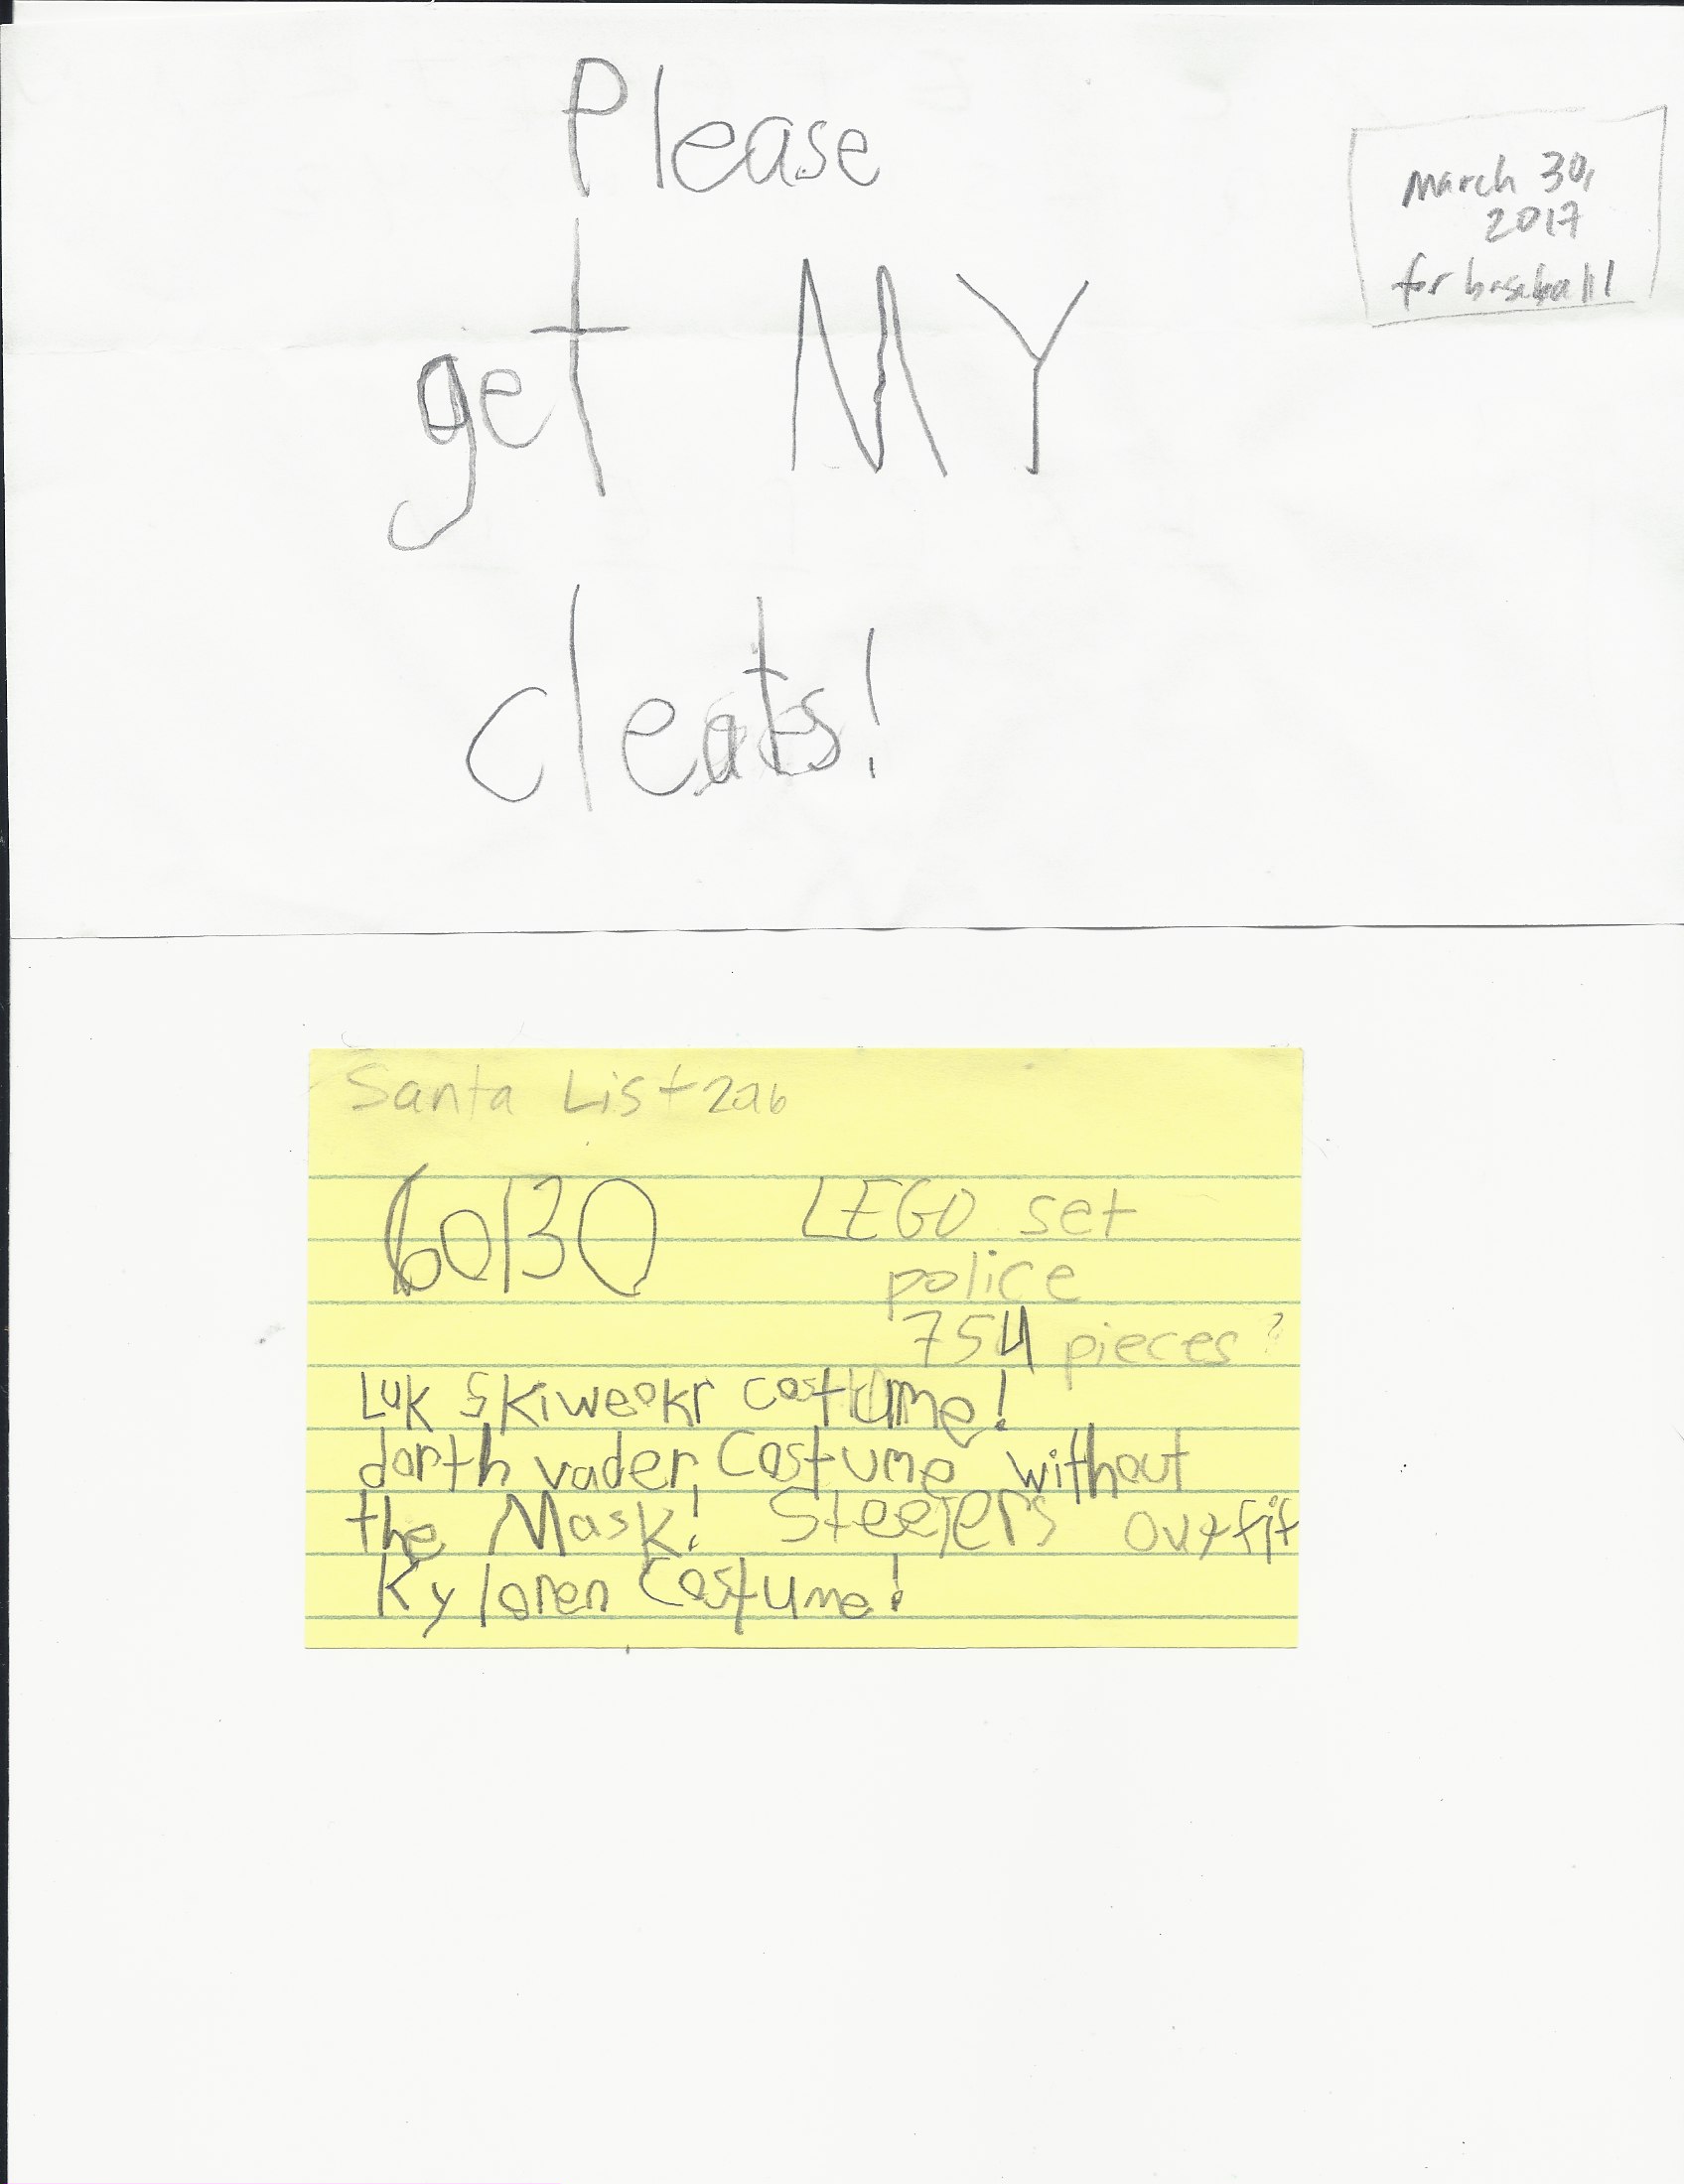 Please
get MY
cleats!
March 30,
2017
for baseball!
Santa List 2016
60130 LEGO set
police
754 pieces?
Luk Skiweokr costume!
darth vader, Costume without
the Mask! Steelers outfit
Kyloren Costume!